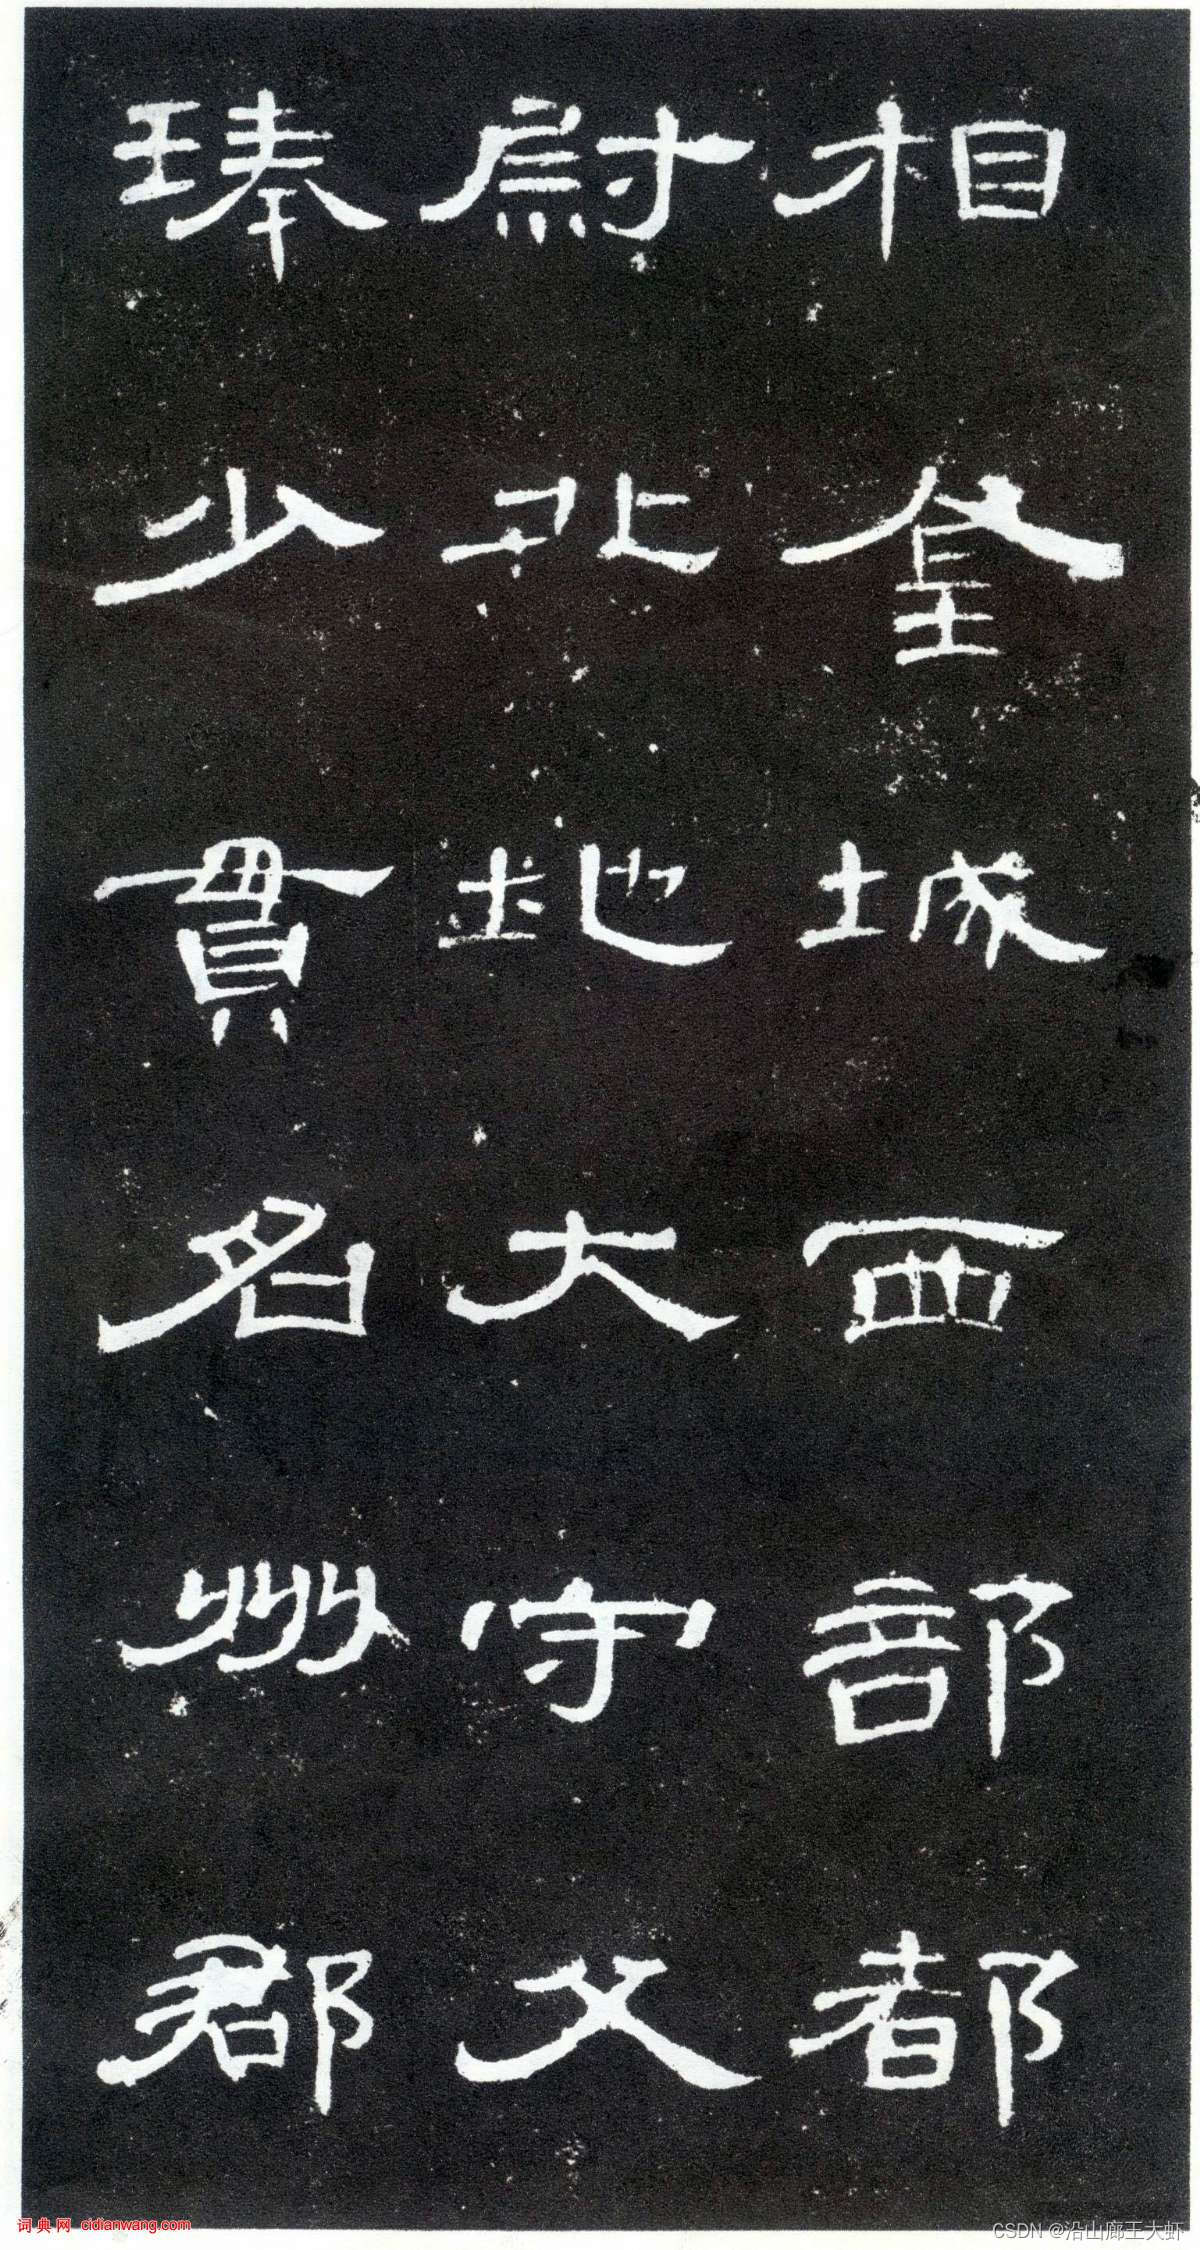 相金城西部都
尉北地大守父
琫少貫名州郡
词典网 cidianwang.com
CSDN @沿山廊王大虾